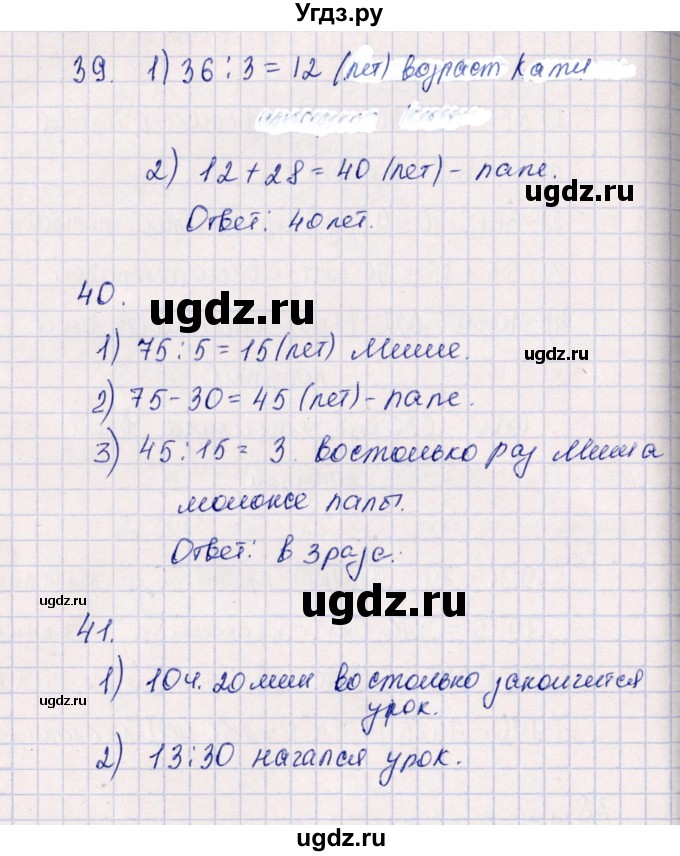 Угдз.ру
39. 1) 36 : 3 = 12 (лет) возраст Кати
2) 12 + 28 = 40 (лет) - папе.
ugdz.ru
Ответ: 40 лет.
40.
ugdz.ru
1) 75 : 5 = 15 (лет) Мише.
ugdz.ru
2) 75 - 30 = 45 (лет) - папе.
3) 45 : 15 = 3. востолько раз Миша
моложе папы.
Ответ: в 3 раза.
ugdz.ru
ugdz.ru
41.
1) 10ч. 20мин востолько закончится
урок.
ugdz.ru
2) 13:30 начался урок.
ugdz.ru